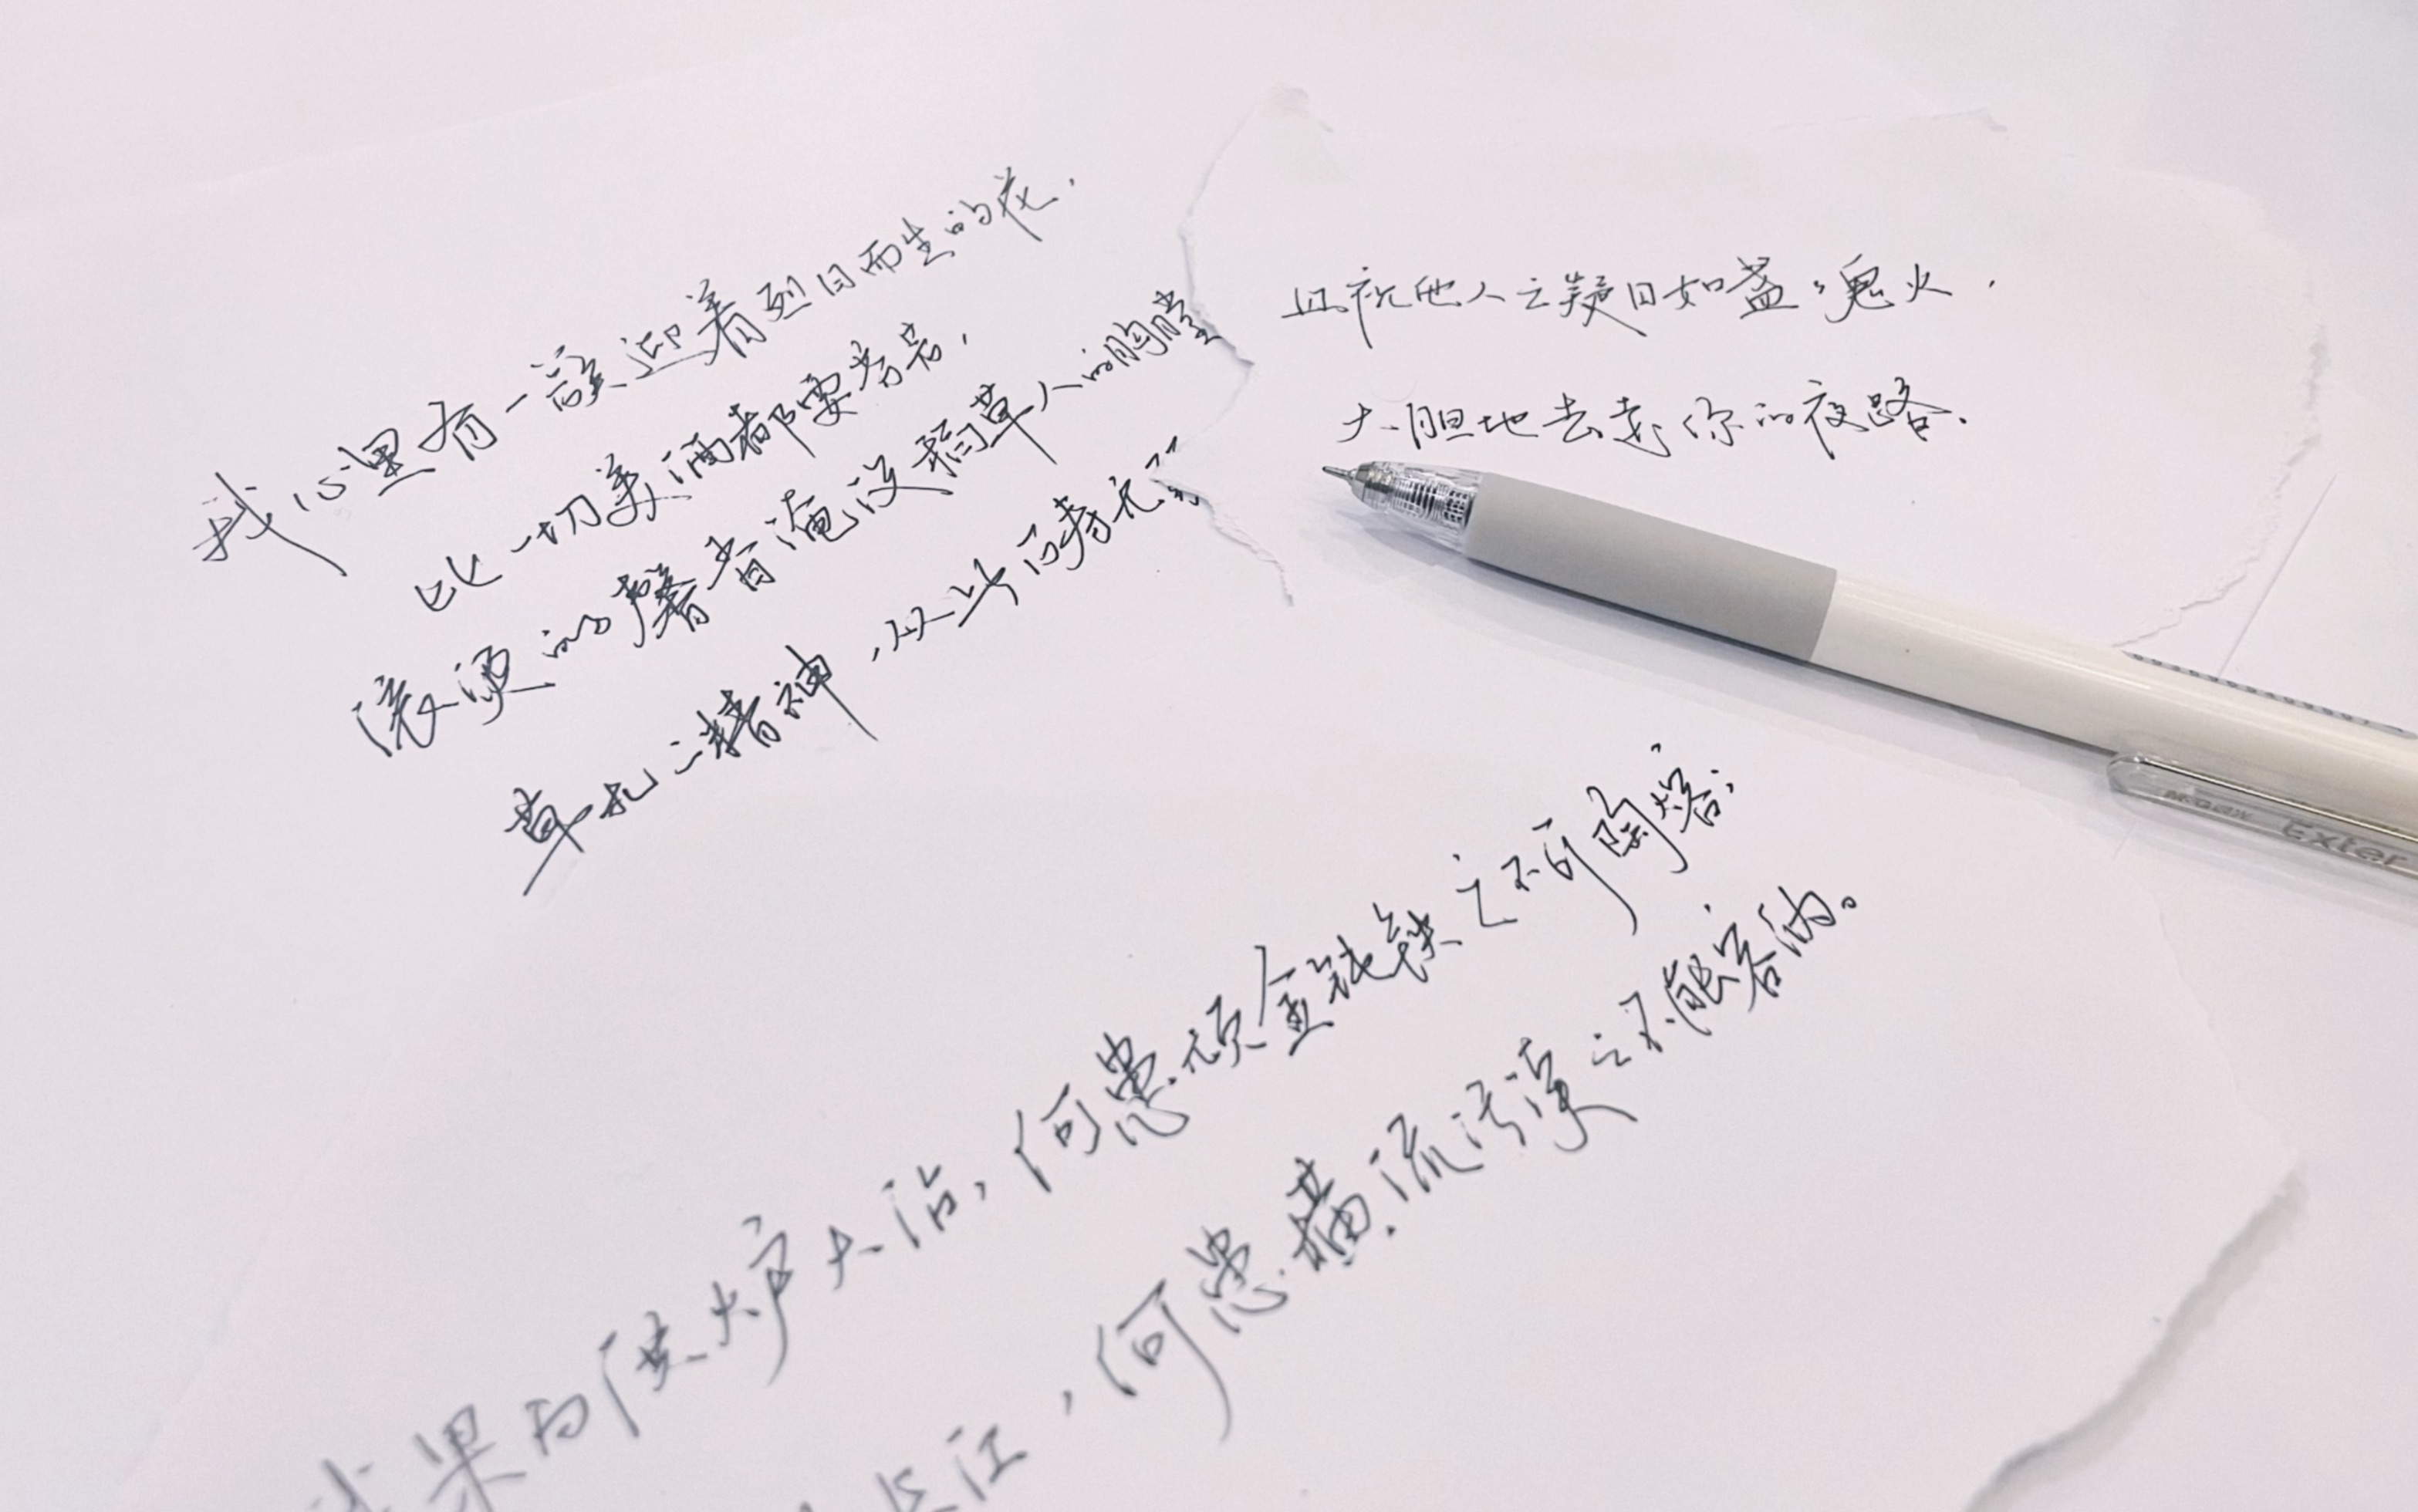 我心里有一簇迎着烈日而生的花,
比一切美酒都要芳香,
滚烫的馨香淹没稻草人的胸膛
草扎的精神,从此万寿无
且视他人之疑目如盏盏鬼火,
大胆地去走你的夜路.
我果为洪炉大冶,何患顽金钝铁之不可陶熔;
长江,何患横流污渎之不能容纳。
M&G
Exter